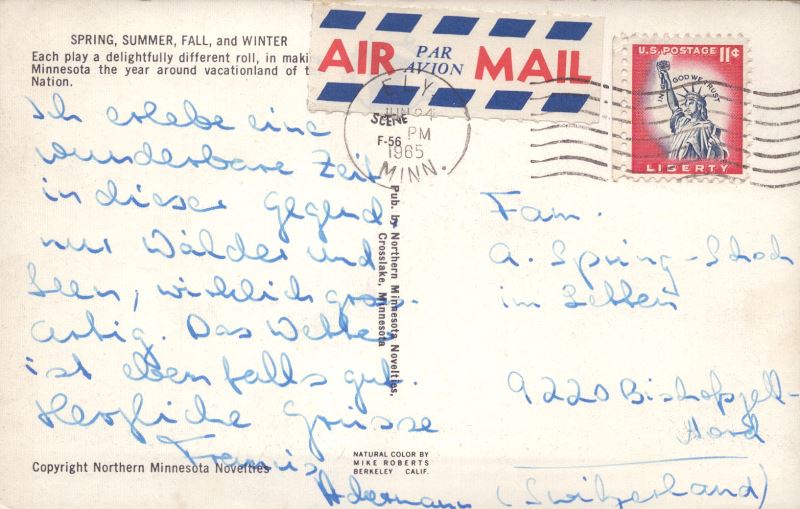 SPRING, SUMMER, FALL, and WINTER
Each play a delightfully different roll, in maki
Minnesota the year around vacationland of t
Nation.
AIR PAR AVION MAIL
U.S. POSTAGE 11¢
IN GOD WE TRUST
LIBERTY
ELY
JUN 24
PM
1965
MINN.
SCENE
F-56
Ich erlebe eine
wunderbare Zeit
in dieser Gegend,
nur Wälder und
Seen, wirklich gross-
artig. Das Wetter
ist ebenfalls gut.
Herzliche Grüsse
Ackermann
Pub. by Northern Minnesota Novelties,
Crosslake, Minnesota
Fam.
A. Spring-Schoch
im Letten
9220 Bischofszell-
Hard
(Switzerland)
Copyright Northern Minnesota Novelties
NATURAL COLOR BY
MIKE ROBERTS
BERKELEY CALIF.